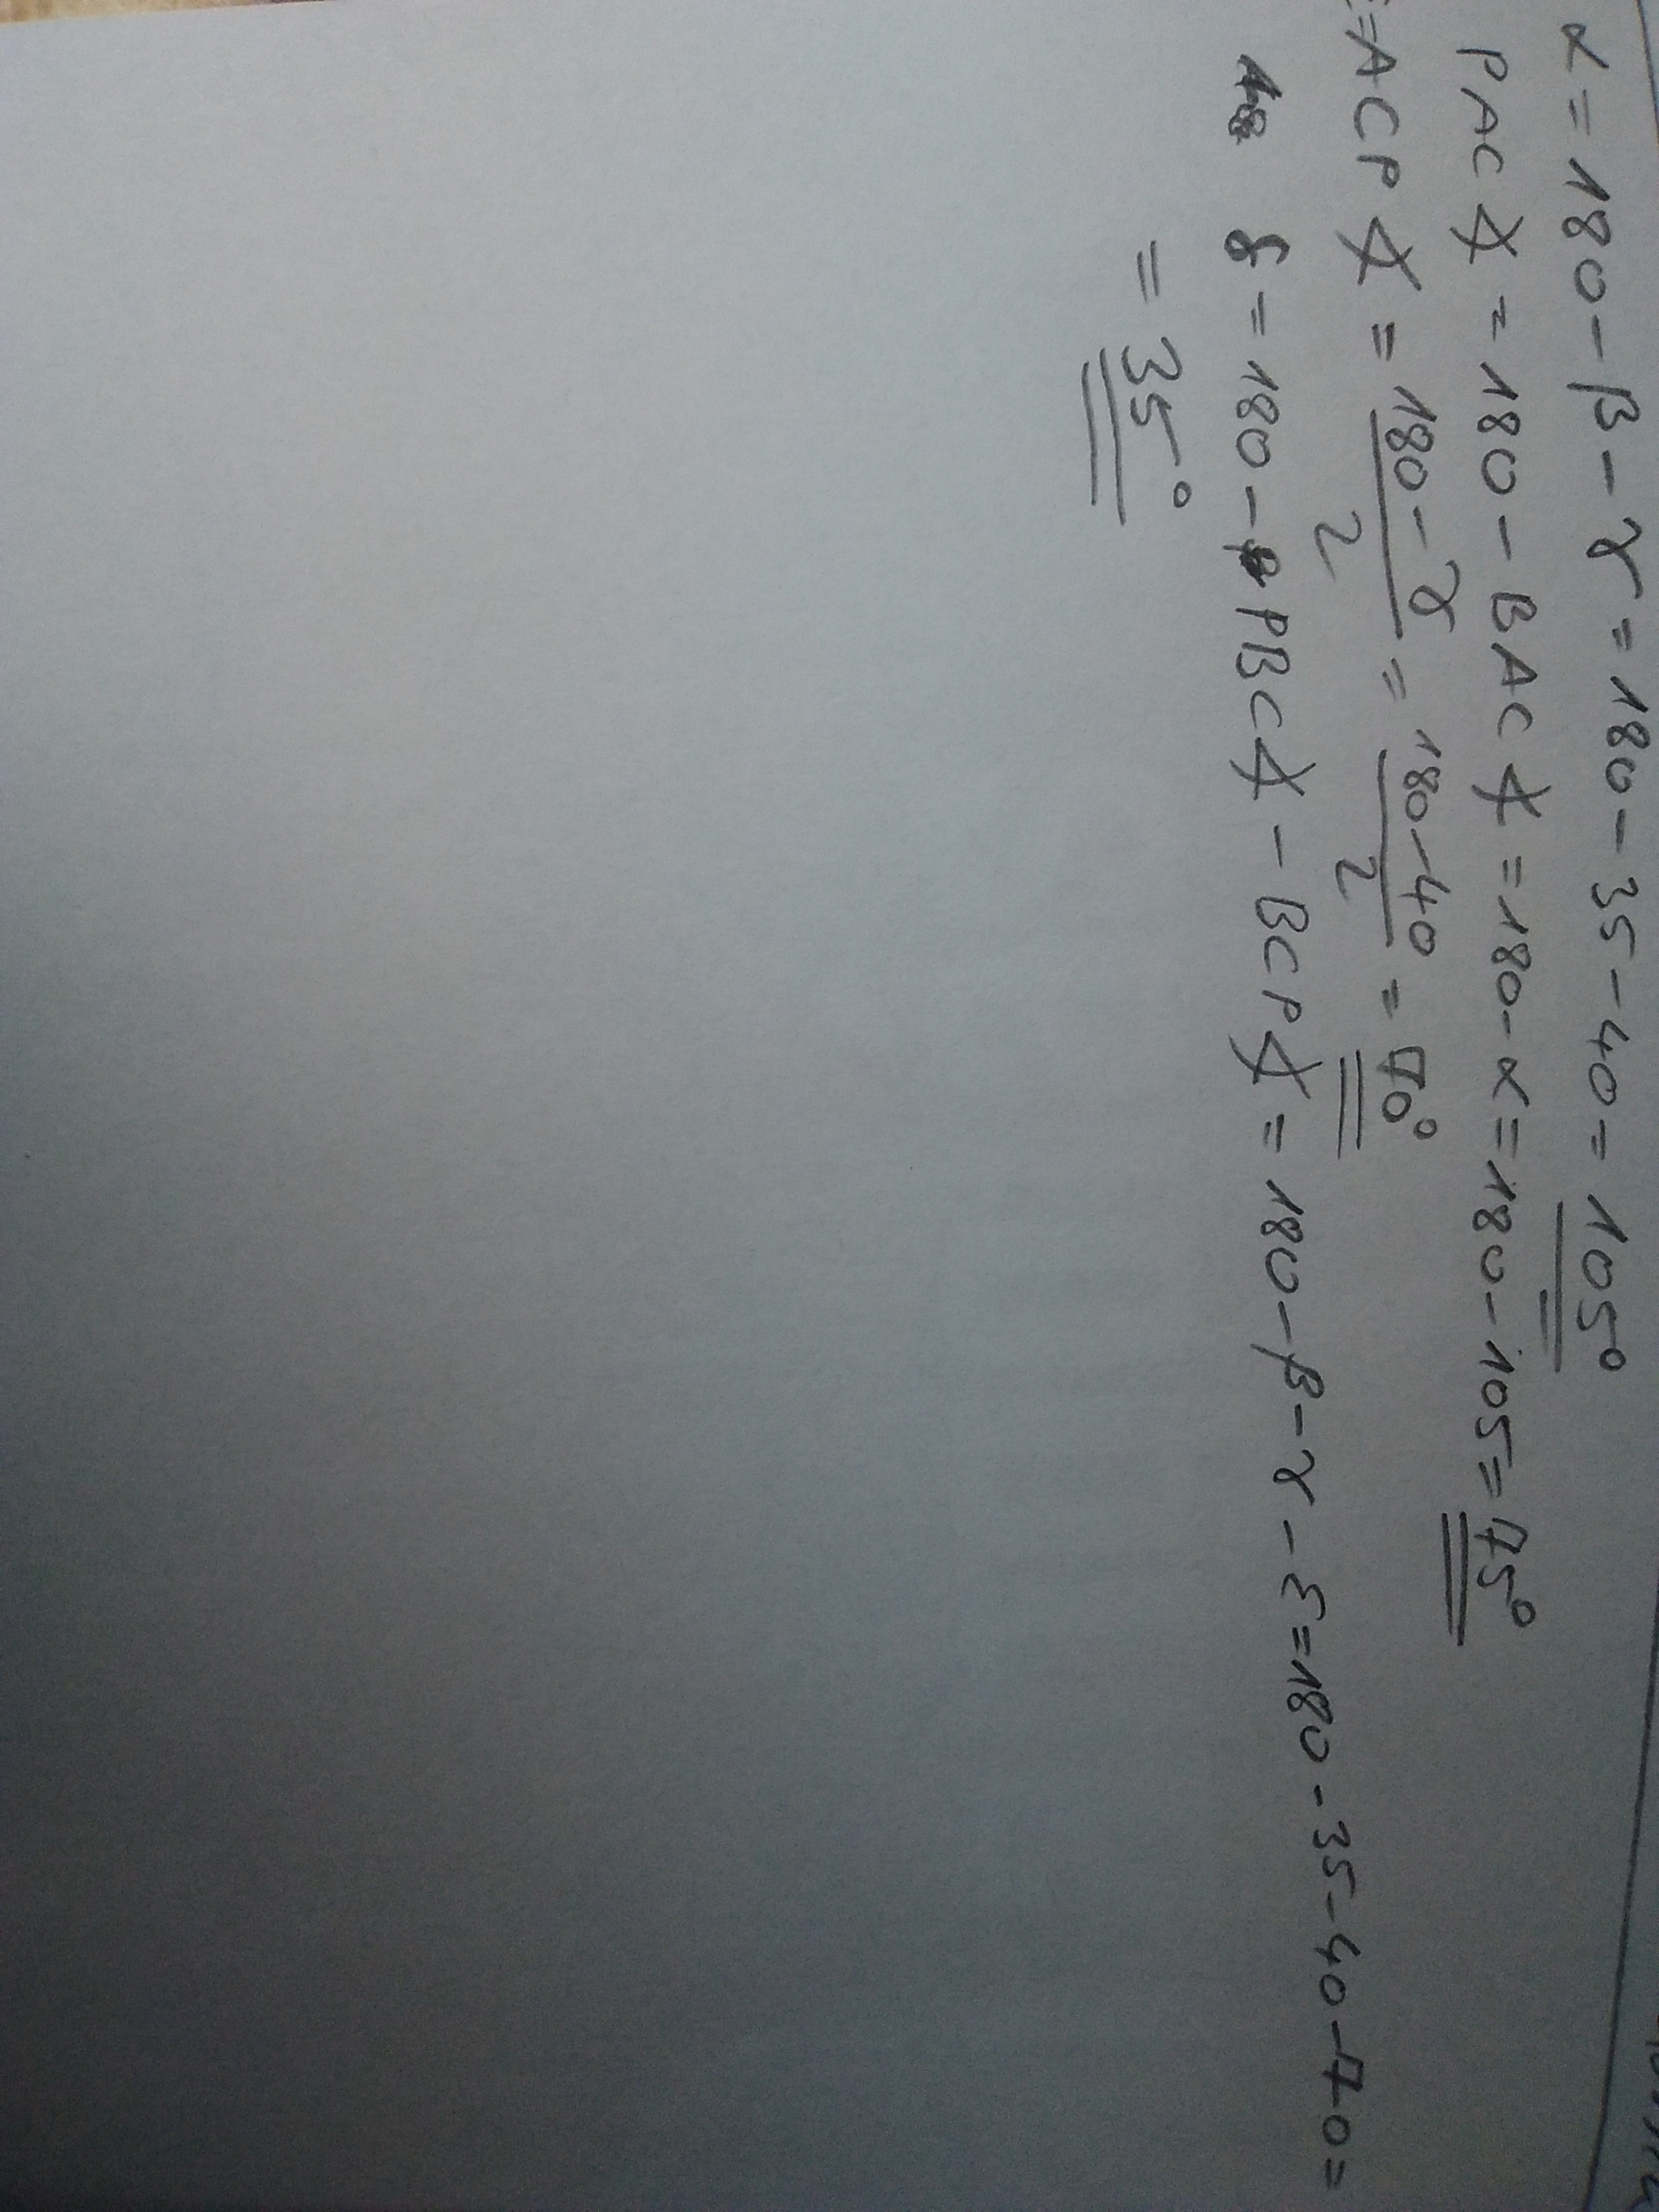 α = 180 - β - γ = 180 - 35 - 40 = 105°
PAC∡ = 180 - BAC∡ = 180 - α = 180 - 105 = 75°
ε = ACP∡ = (180 - γ)/2 = (180 - 40)/2 = 70°
δ = 180 - PBC∡ - BCP∡ = 180 - β - γ - ε = 180 - 35 - 40 - 70 =
= 35°